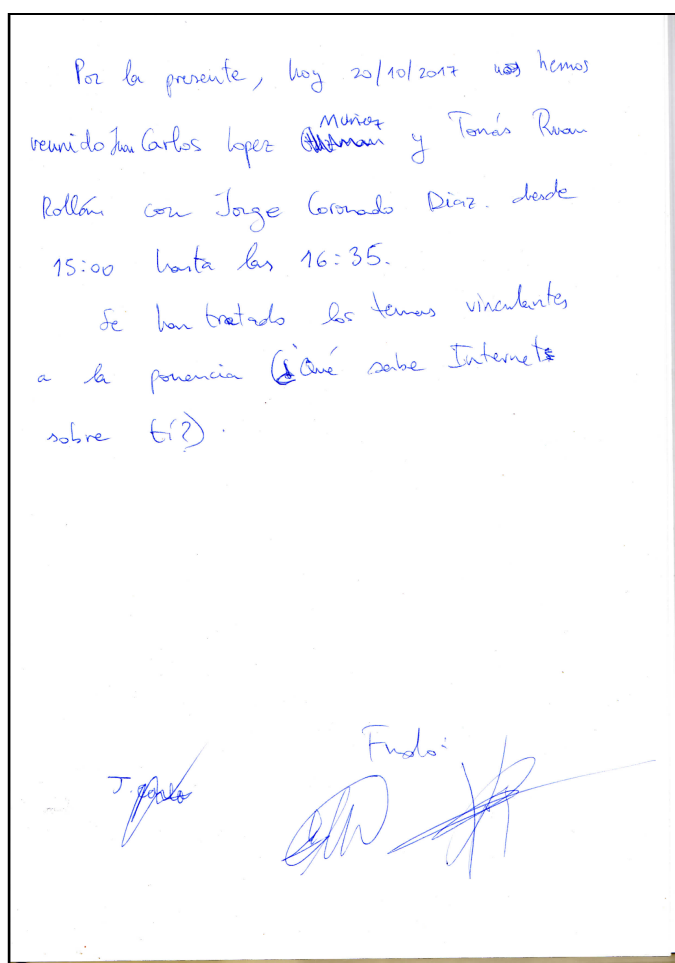 Por la presente, hoy 20/10/2017 nos hemos
Muñoz
reunido Juan Carlos Lopez y Tomás Ruan
Rollán con Jorge Coronado Diaz. desde
15:00 hasta las 16:35.
Se han tratado los temas vinculantes
a la ponencia (¿Qué sabe Internet
sobre tí?).
Fndo:
J.